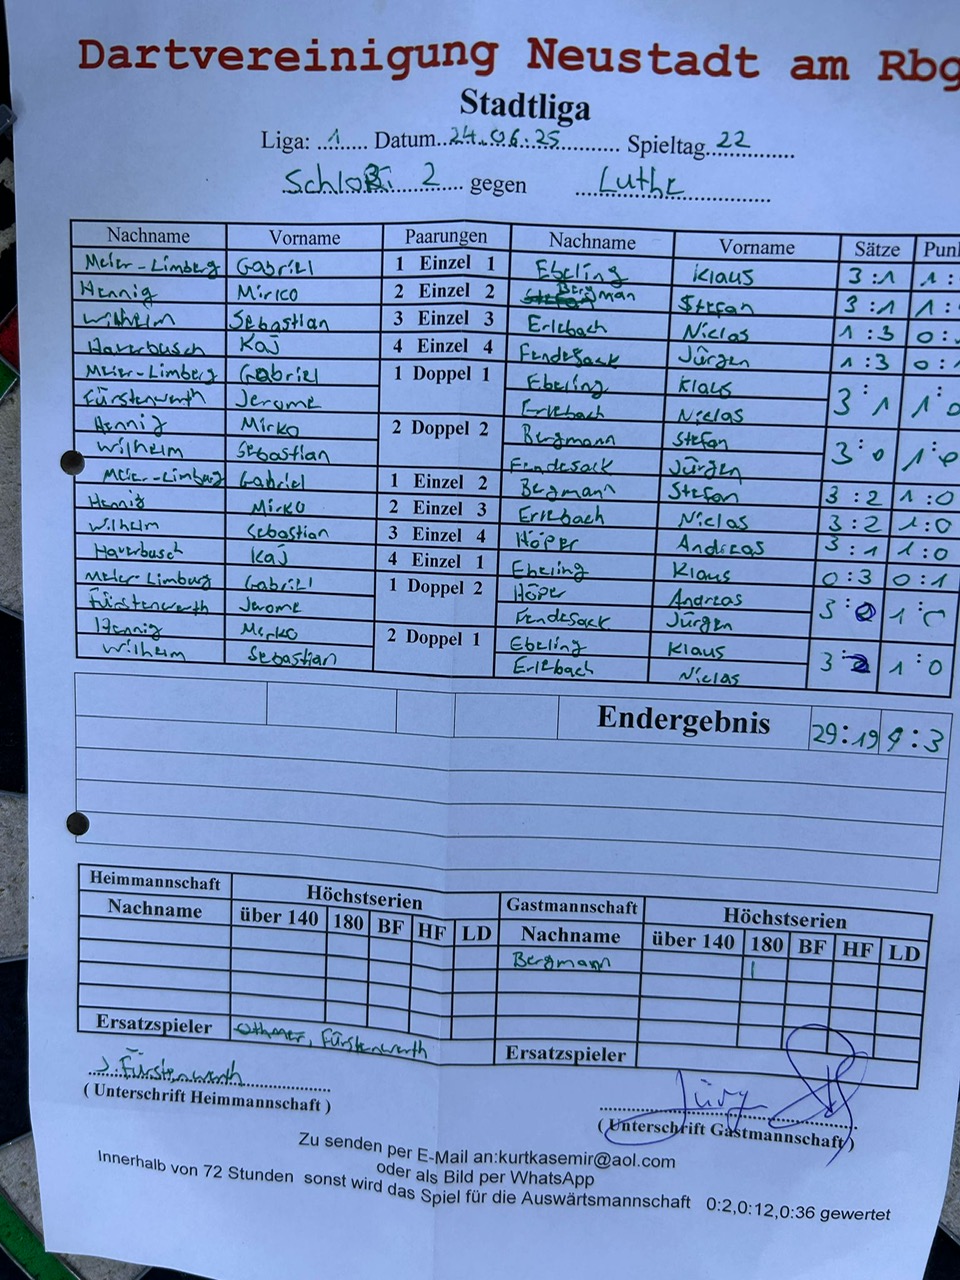 Dartvereinigung Neustadt am Rbg
Stadtliga
Liga: 1 Datum 24.06.25 Spieltag 22
Schloß 2 gegen Luthe
Nachname Vorname Paarungen Nachname Vorname Sätze Punk
Meier-Limberg Gabriel 1 Einzel 1 Ebeling Klaus 3:1 1:
Hennig Mirko 2 Einzel 2 Bergman Stefan 3:1 1:
Wilhelm Sebastian 3 Einzel 3 Erlebach Niclas 1:3 0:
Haverbusch Kaj 4 Einzel 4 Fendesack Jürgen 1:3 0:1
Meier-Limberg Gabriel 1 Doppel 1 Ebeling Klaus 3:1 1:0
Fürstenwerth Jerome Erlebach Niclas
Hennig Mirko 2 Doppel 2 Bergmann Stefan 3:0 1:0
Wilhelm Sebastian Fendesack Jürgen
Meier-Limberg Gabriel 1 Einzel 2 Bergmann Stefan 3:2 1:0
Hennig Mirko 2 Einzel 3 Erlebach Niclas 3:2 1:0
Wilhelm Sebastian 3 Einzel 4 Höper Andreas 3:1 1:0
Haverbusch Kaj 4 Einzel 1 Ebeling Klaus 0:3 0:1
Meier-Limburg Gabriel 1 Doppel 2 Höper Andreas 3: 1:0
Fürstenwerth Jerome Fendesack Jürgen
Hennig Mirko 2 Doppel 1 Ebeling Klaus 3:2 1:0
Wilhelm Sebastian Erlebach Niclas
Endergebnis 29:19 9:3
Heimmannschaft Höchstserien Gastmannschaft Höchstserien
Nachname über 140 180 BF HF LD Nachname über 140 180 BF HF LD
Bergmann 1
Ersatzspieler Othmer, Fürstenwerth Ersatzspieler
J. Fürstenwerth
( Unterschrift Heimmannschaft )
( Unterschrift Gastmannschaft )
Zu senden per E-Mail an:kurtkasemir@aol.com
oder als Bild per WhatsApp
Innerhalb von 72 Stunden sonst wird das Spiel für die Auswärtsmannschaft 0:2,0:12,0:36 gewertet